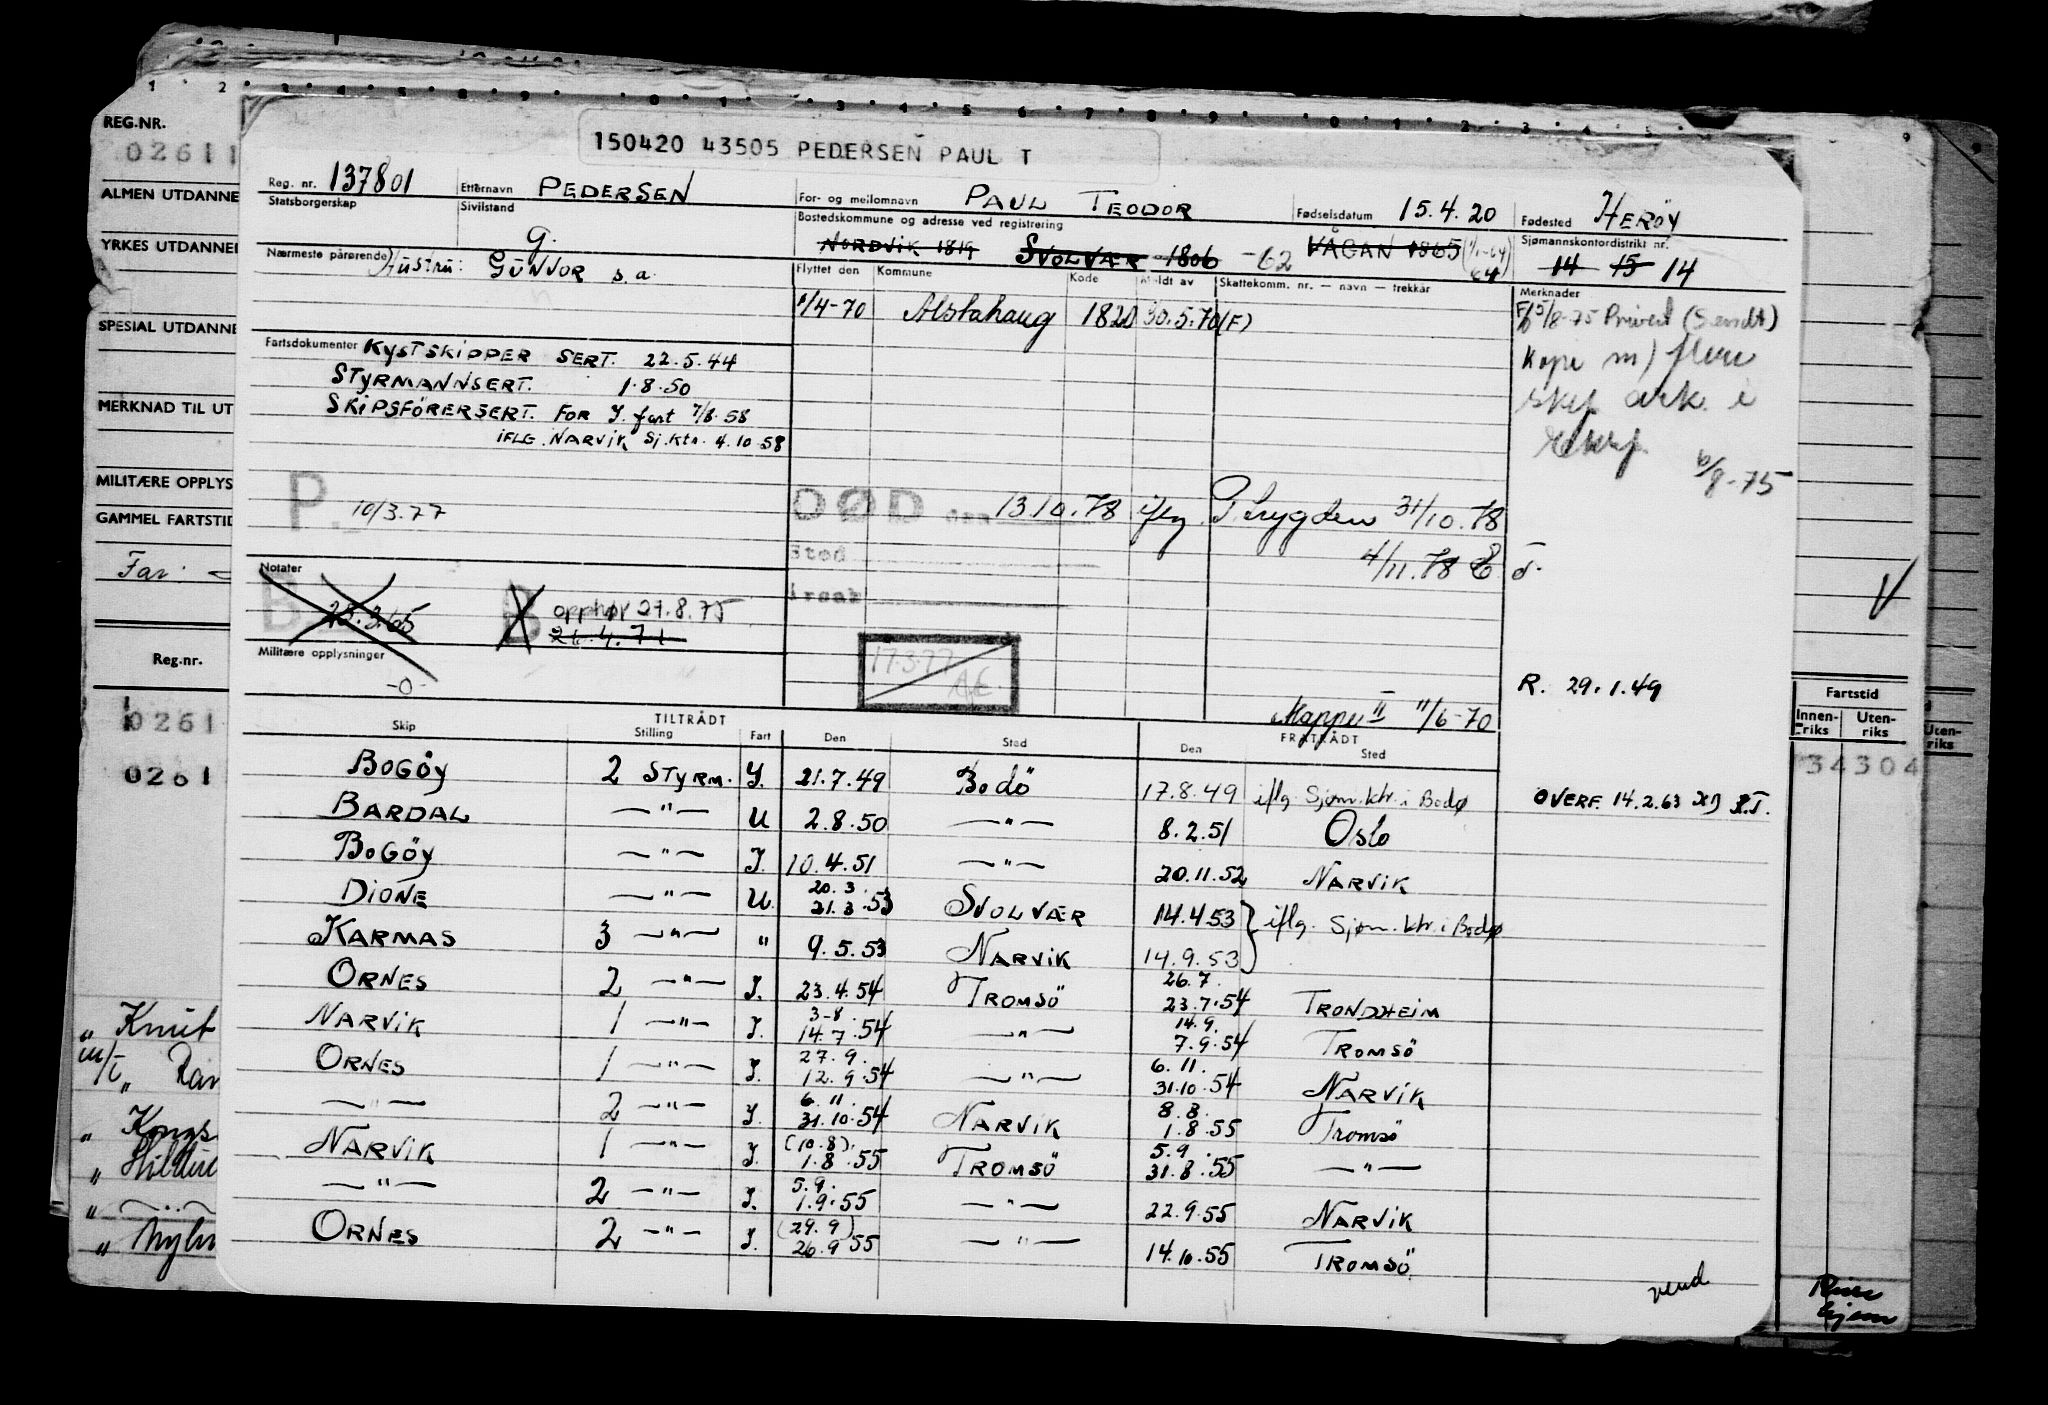 REG.NR.
02611
ALMEN UTDANNE
YRKES UTDANNE
SPESIAL UTDANNE
MERKNAD TIL UT
MILITÆRE OPPLYS
GAMMEL FARTSTID
Far.
Reg.nr.
0261
0261
" Knut
" Kongs
150420 43505 PEDERSEN PAUL T
Reg. nr. 137801 Etternavn PEDERSEN For- og mellomnavn PAUL TEODOR Fødselsdatum 15.4.20 Fødested HERÖY
Statsborgerskap Sivilstand G. Bostedskommune og adresse ved registrering Sjømannskontordistrikt nr.
NORDVIK 1819 SVOLVÆR 1806 -62 VÅGAN 1865 (1/1-64) 64 14 15 14
Nærmeste pårørende Hustru: GUNVOR s.a.
Flyttet den Kommune Kode Meldt av Skattekomm. nr. — navn — trekkår Merknader
1/4-70 Alstahaug 1820 30.5.70 (F)
5/8-75 Privert (Sendt)
kopi m) flere
skip
6/8-75
Fartsdokumenter KYSTSKIPPER SERT. 22.5.44
STYRMANNSERT. 1.8.50
SKIPSFÖRERSERT. FOR I. fart 7/8.58
IFLG. NARVIK Sj.ktr. 4.10.58
P. 10/3.77
DØD den 13.10.78 iflg. P.trygden 31/10.78
Sted 4/11.78
Årsak
Notater
B 23.3.65 B opphør 27.8.75
26.4.71
Militære opplysninger
-0-
17.3.77
R. 29.1.49
Mappe II 11/6-70
TILTRÅDT FRATRÅDT
Skip Stilling Fart Den Sted Den Sted
BOGÖY 2 STYRM. I. 21.7.49 Bodö 17.8.49 iflg. Sjøm.ktr. i Bodø
OVERF. 14.2.63
BARDAL —"— U 2.8.50 —"— 8.2.51 Oslo
BOGÖY —"— I. 10.4.51 —"— 20.11.52 NARVIK
DIONE —"— U. 20.3. 21.3.53 SVOLVÆR 14.4.53 } iflg. Sjøm.ktr. i Bodø
KARMAS 3 —"— " 9.5.53 NARVIK 14.9.53
ORNES 2 —"— I. 23.4.54 TROMSÖ 26.7. 23.7.54 TRONDHEIM
NARVIK 1 —"— I. 3-8. 14.7.54 —"— 14.9. 7.9.54 TROMSÖ
ORNES 1 —"— I. 27.9. 12.9.54 —"— 6.11. 31.10.54 NARVIK
—"— 2 —"— I. 6.11. 31.10.54 NARVIK 8.8. 1.8.55 Tromsö
NARVIK 1 —"— I. (10.8). 1.8.55 TROMSÖ 5.9. 31.8.55 —"—
—"— 2 —"— I. 5.9. 1.9.55 —"— 22.9.55 NARVIK
ORNES 2 —"— I. (29.9) 26.9.55 —"— 14.10.55 TROMSÖ
vend
Fartstid
Innen-riks Uten-riks
Uten-riks
34304